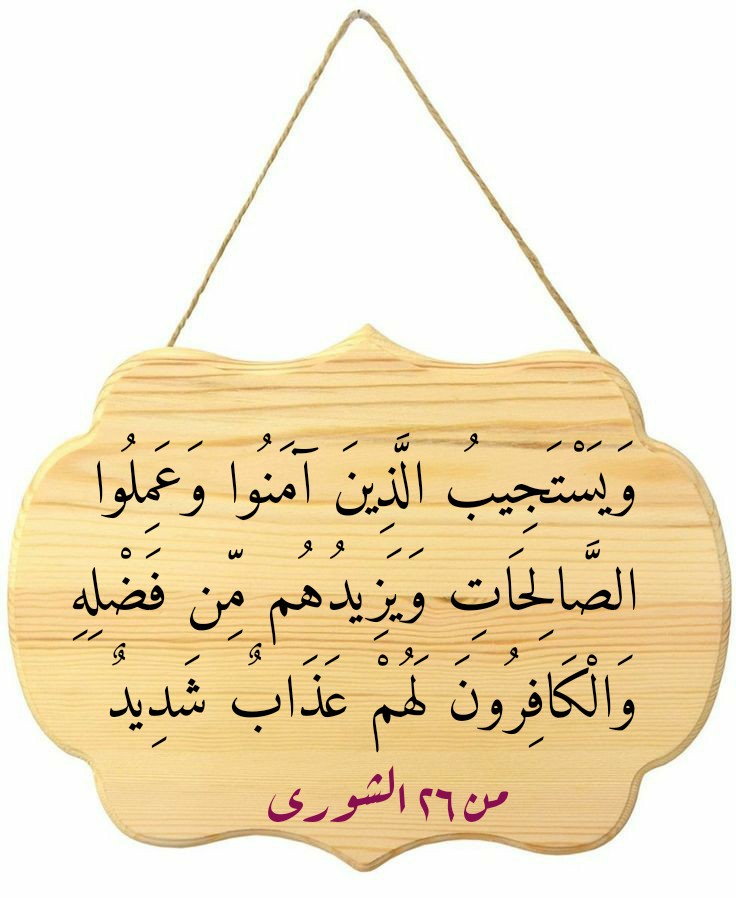 وَيَسْتَجِيبُ الَّذِينَ آمَنُوا وَعَمِلُوا
الصَّالِحَاتِ وَيَزِيدُهُم مِّن فَضْلِهِ
وَالْكَافِرُونَ لَهُمْ عَذَابٌ شَدِيدٌ
من ٢٦ الشورى